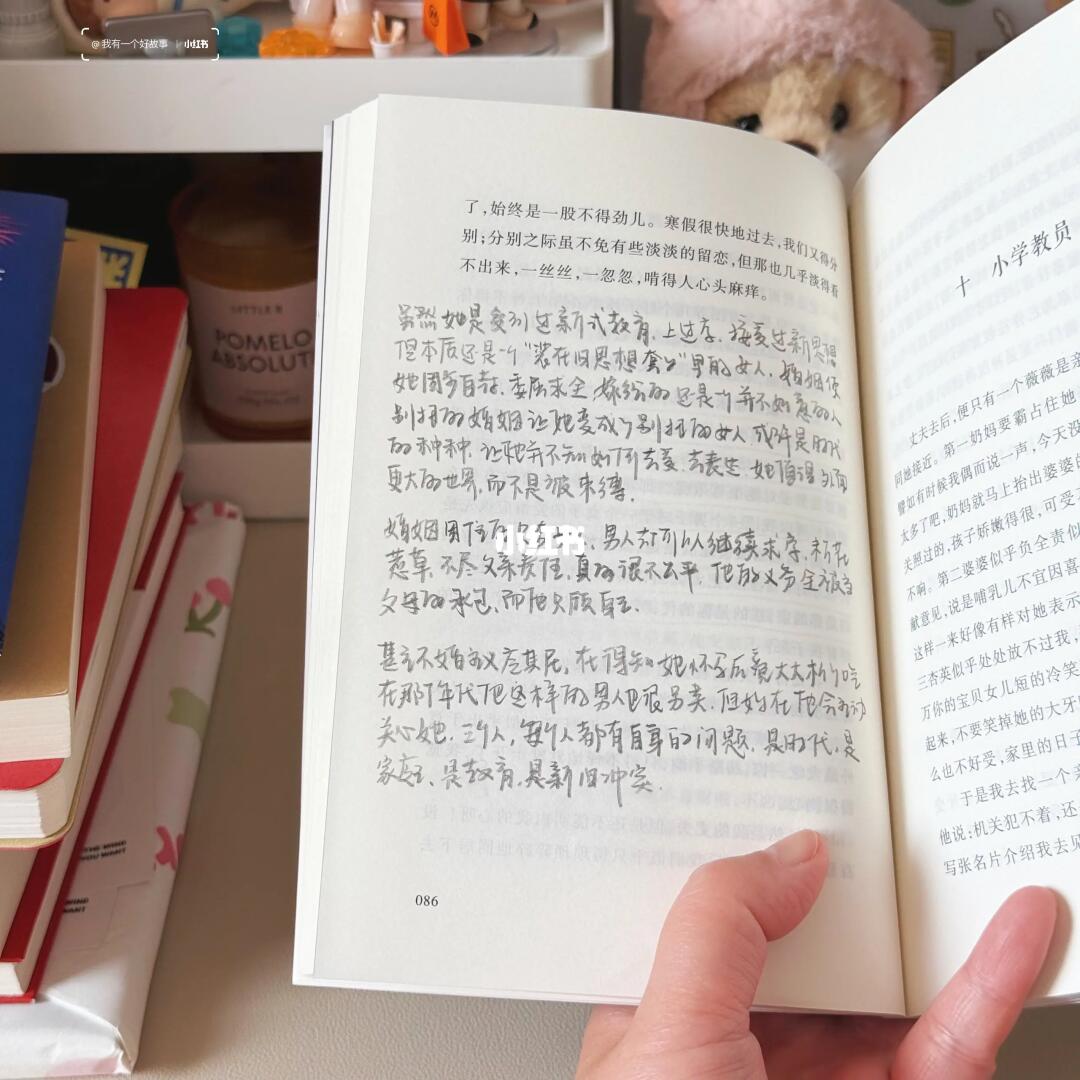 @我有一个好故事 小红书
LITTLE B
POMELO
ABSOLUT
THE WIND
YOU WANT
WIND
WANT
了,始终是一股不得劲儿。寒假很快地过去,我们又得分
别;分别之际虽不免有些淡淡的留恋,但那也几乎淡得看
不出来,一丝丝,一忽忽,啃得人心头麻痒。
虽然她是受到过新式教育、上过学、接受过新思想
但本质还是一个“装在旧思想套子”里的女人,婚姻使
她固步自封、委屈求全 嫁给的还是一个并不如意的人
别扭的婚姻让她变成了别扭的女人 或许是时代
的种种,让她并不知如何去爱、去表达,她值得外面
更大的世界,而不是被束缚。
婚姻困住 小红书 男人却可以继续求学、
惹草、不尽父亲责任,真的很不公平,他的义务全被
父母的承包,而他只顾自己。
甚至不婚主义 在得知她怀孕后
在那个年代他这样的男人也很另类,但好在他会主动
关心她,三个人,每个人都有自身的问题,是时代,是
家庭、是教育,是新旧冲突.
086
十 小学教员
丈夫去后,便只有一个薇薇是亲
同她接近。第一奶妈要霸占住她
譬如有时候我偶而说一声,今天没
太多了吧,奶妈就马上抬出婆婆的
关照过的,孩子娇嫩得很,可受
不响。第二婆婆似乎负全责似
献意见,说是哺乳儿不宜因喜
这样一来好像有样对她表示
三杏英似乎处处放不过我,
万你的宝贝女儿短的冷笑
起来,不要笑掉她的大牙
么也不好受,家里的日子
于是我去找一个亲
他说:机关犯不着,还
写张名片介绍我去见